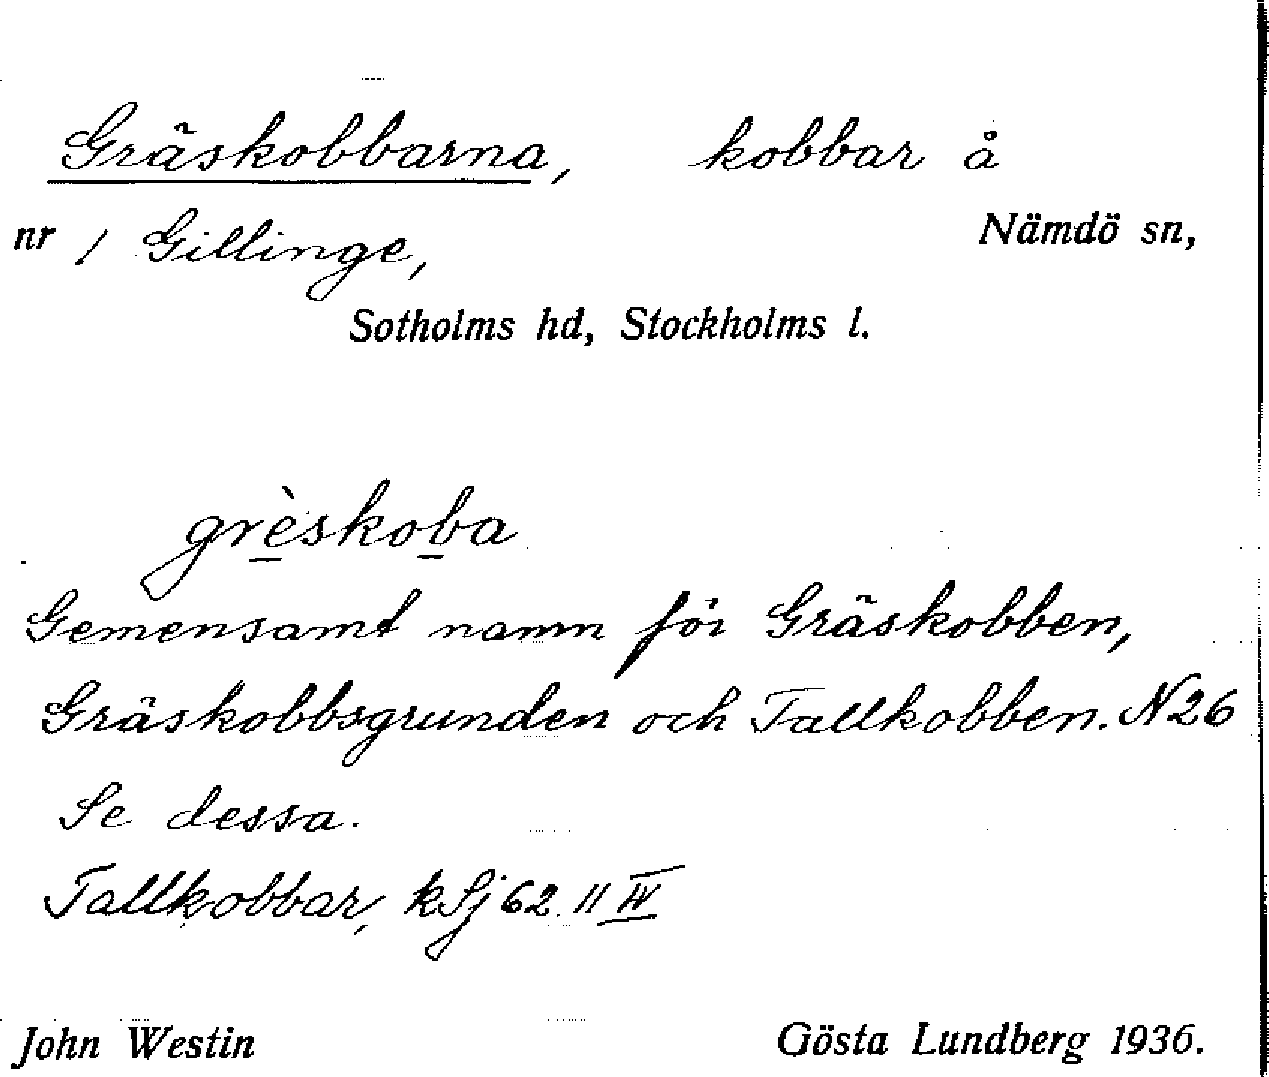 Gräskobbarna, kobbar å
nr 1 Gillinge, Nämdö sn,
Sotholms hd, Stockholms l.
grèskoba
Gemensamt namn för Gräskobben,
Gräskobbsgrunden och Tallkobben. N26
Se dessa.
Tallkobbar, kSj 62 II IV
John Westin Gösta Lundberg 1936.